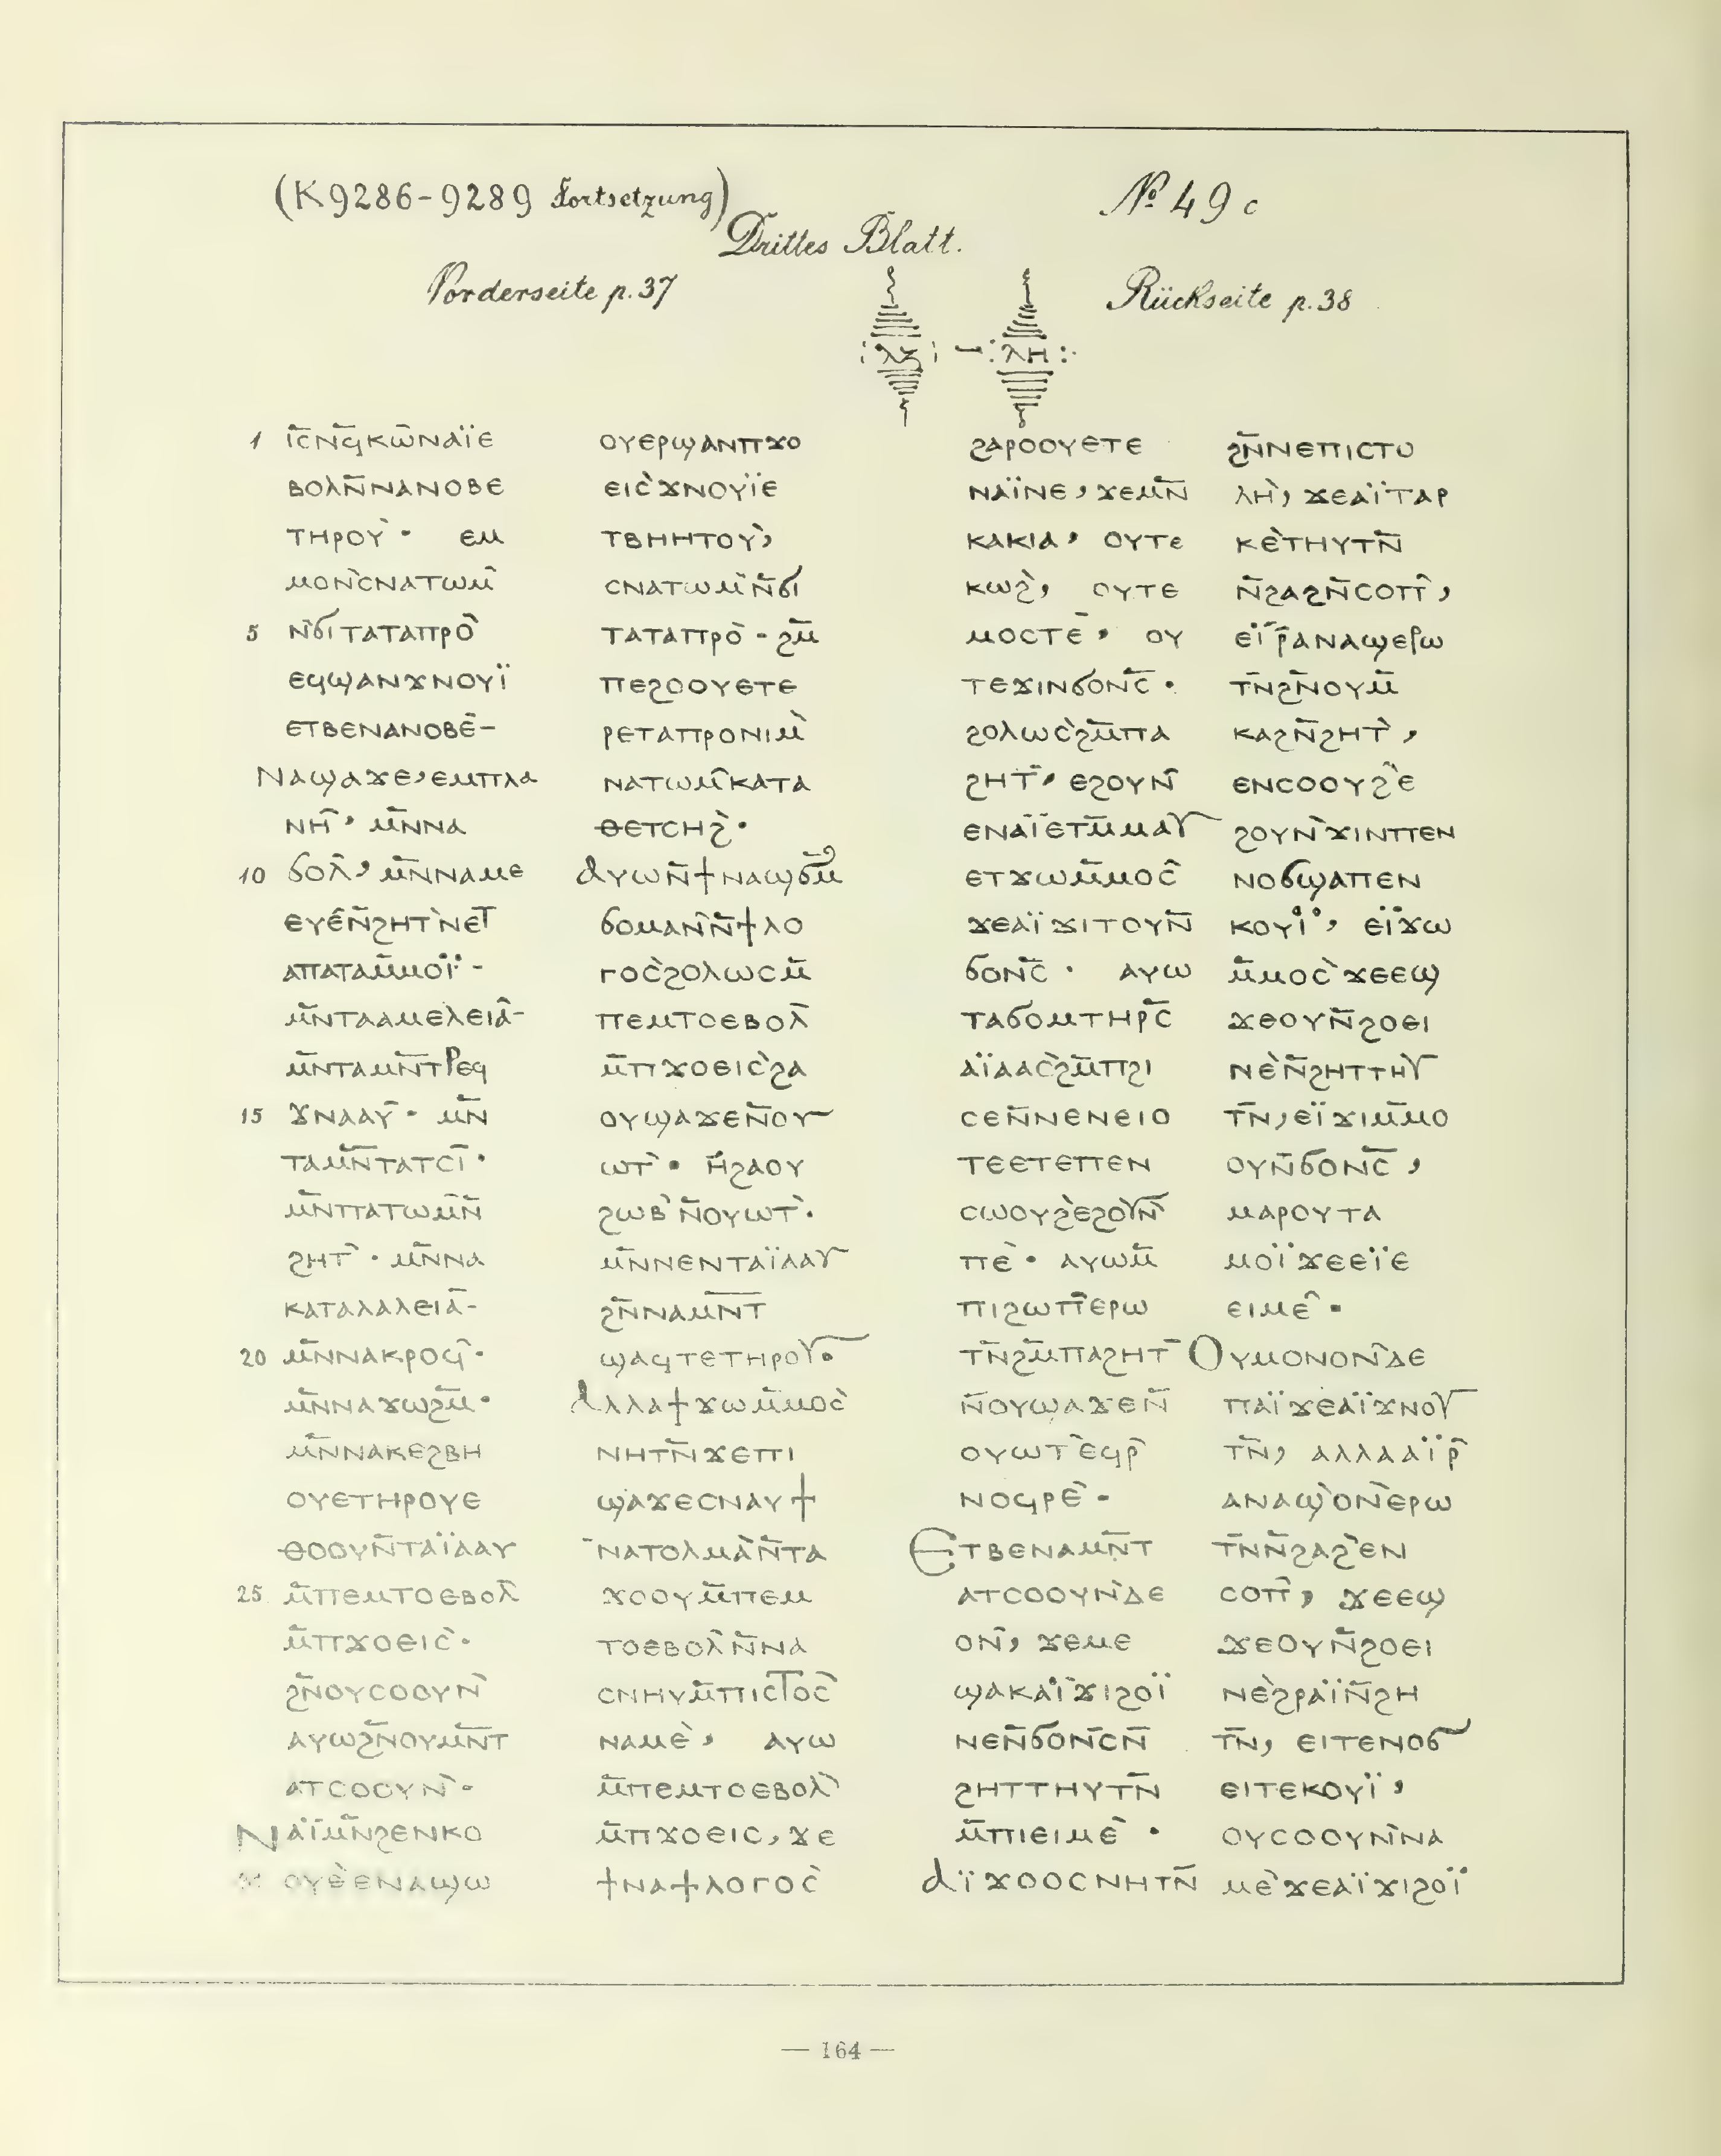 (K9286-9289 Fortsetzung)
№ 49 c
Drittes Blatt.
Vorderseite p. 37
Rückseite p. 38
:ⲗⲍ: - :ⲗⲏ:
1 ⲓ̅ⲥ̅ⲛ̅ϥ̅ⲕⲱ̅ⲛⲁⲓ̈ⲉ
ⲃⲟⲗⲛ̅ⲛⲁⲛⲟⲃⲉ
ⲧⲏⲣⲟⲩ̀· ⲉⲙ
ⲙⲟⲛ̀ⲥⲛⲁⲧⲱⲙ̅
5 ⲛ̅ϭⲓⲧⲁⲧⲁⲡⲣⲟ̂
ⲉϥϣⲁⲛϫⲛⲟⲩⲓ̈
ⲉⲧⲃⲉⲛⲁⲛⲟⲃⲉ̅-
Ⲛⲁϣⲁϫⲉ,ⲉⲙⲡⲗⲁ
ⲛⲏ̂, ⲙ̅ⲛ̅ⲛⲁ
10 ϭⲟⲗ̂, ⲙ̅ⲛ̅ⲛⲁⲙⲉ
ⲉⲩⲉ̂ⲛ̅ϩⲏⲧ̀ⲛⲉⲧ̅
ⲁⲡⲁⲧⲁⲙ̅ⲙⲟⲓ̈·-
ⲙ̅ⲛ̅ⲧⲁⲁⲙⲉⲗⲉⲓⲁ̂-
ⲙ̅ⲛ̅ⲧⲁⲙ̅ⲛ̅ⲧⲣⲉϥ
15 ϫⲛⲁⲁⲩ̅· ⲙ̅ⲛ̅
ⲧⲁⲙ̅ⲛ̅ⲧⲁⲧⲥⲓ̅·
ⲙ̅ⲛ̅ⲡⲁⲧⲱⲙ̅ⲛ̅
ϩⲏⲧ̂· ⲙ̅ⲛ̅ⲛⲁ
ⲕⲁⲧⲁⲗⲁⲗⲉⲓⲁ̅-
20 ⲙ̅ⲛ̅ⲛⲁⲕⲣⲟϥ̂·
ⲙ̅ⲛ̅ⲛⲁϫⲱϩⲙ̅·
ⲙ̅ⲛ̅ⲛⲁⲕⲉϩⲃⲏ
ⲟⲩⲉⲧⲏⲣⲟⲩⲉ
ⲑⲟⲟⲩⲛ̅ⲧⲁⲓ̈ⲁⲁⲩ
25 ⲙ̅ⲡⲉⲙⲧⲟⲉⲃⲟⲗ̅
ⲙ̅ⲡϫⲟⲉⲓⲥ̀·
ϩⲛ̅ⲟⲩⲥⲟⲟⲩⲛ̀
ⲁⲩⲱϩⲛ̅ⲟⲩⲙ̅ⲛ̅ⲧ
ⲁⲧⲥⲟⲟⲩⲛ̀·
Ⲛⲁⲓ̈ⲙ̅ⲛ̅ϩⲉⲛⲕⲟ
31 ⲟⲩⲉ̀ⲉⲛⲁϣⲱ
ⲟⲩⲉⲣϣⲁⲛⲡϫⲟ
ⲉⲓⲥ̀ϫⲛⲟⲩⲓ̈ⲉ
ⲧⲃⲏⲏⲧⲟⲩ̀,
ⲥⲛⲁⲧⲱⲙ̀ⲛ̅ϭⲓ
ⲧⲁⲧⲁⲡⲣⲟ̀·ϩⲙ̅
ⲡⲉϩⲟⲟⲩⲉⲧⲉ
ⲣⲉⲧⲁⲡⲣⲟⲛⲓⲙ̀
ⲛⲁⲧⲱⲙ̂ⲕⲁⲧⲁ
ⲑⲉⲧⲥⲏϩ̀·
Ⲁⲩⲱⲛ̅ϯⲛⲁϣϭⲙ̅
ϭⲟⲙⲁⲛ̀ⲛ̅ϯⲗⲟ
ⲅⲟⲥ̀ϩⲟⲗⲱⲥⲙ̅
ⲡⲉⲙⲧⲟⲉⲃⲟⲗ̅
ⲙ̅ⲡϫⲟⲉⲓⲥ̀ϩⲁ
ⲟⲩϣⲁϫⲉⲛ̅ⲟⲩ
ⲱⲧ̀· ⲏ̈ϩⲁⲟⲩ
ϩⲱⲃ̀ⲛ̅ⲟⲩⲱⲧ̀·
ⲙ̅ⲛ̅ⲛⲉⲛⲧⲁⲓ̈ⲁⲁⲩ
ϩⲛ̅ⲛⲁⲙ̅ⲛ̅ⲧ
ϣⲁϥⲧⲉⲧⲏⲣⲟⲩ·
Ⲁⲗⲗⲁϯϫⲱⲙ̅ⲙⲟⲥ̀
ⲛⲏⲧⲛ̅ϫⲉⲡⲓ
ϣⲁϫⲉⲥⲛⲁⲩϯ
ⲛⲁⲧⲟⲗⲙⲁ̀ⲛ̅ⲧⲁ
ϫⲟⲟⲩⲙ̅ⲡⲉⲙ
ⲧⲟⲉⲃⲟⲗ̀ⲛ̅ⲛⲁ
ⲥⲛⲏⲩⲙ̅ⲡⲓⲥⲧⲟⲥ̀
ⲛⲁⲙⲉ̀, ⲁⲩⲱ
ⲙ̅ⲡⲉⲙⲧⲟⲉⲃⲟⲗ̀
ⲙ̅ⲡϫⲟⲉⲓⲥ,ϫⲉ
ϯⲛⲁϯⲗⲟⲅⲟⲥ̀
ϩⲁⲣⲟⲟⲩⲉⲧⲉ
ⲛⲁⲓ̈ⲛⲉ,ϫⲉⲙ̅ⲛ̅
ⲕⲁⲕⲓⲁ, ⲟⲩⲧⲉ
ⲕⲱϩ̀, ⲟⲩⲧⲉ
ⲙⲟⲥⲧⲉ̅, ⲟⲩ
ⲧⲉϫⲓⲛϭⲟⲛ̅ⲥ̅·
ϩⲟⲗⲱⲥ̀ϩⲙ̅ⲡⲁ
ϩⲏⲧ̂, ⲉϩⲟⲩⲛ̂
ⲉⲛⲁⲓ̈ⲉⲧⲙ̅ⲙⲁⲩ
ⲉⲧϫⲱⲙ̅ⲙⲟⲥ̂
ϫⲉⲁⲓ̈ϫⲓⲧⲟⲩⲛ̅
ϭⲟⲛ̅ⲥ̅· ⲁⲩⲱ
ⲧⲁϭⲟⲙⲧⲏⲣⲥ̅
ⲁⲓ̈ⲁⲁⲥ̀ϩⲙ̅ⲡϩⲓ
ⲥⲉⲛ̅ⲛⲉⲛⲉⲓⲟ
ⲧⲉⲉⲧⲉⲡⲉⲛ
ⲥⲱⲟⲩϩ̀ⲉϩⲟⲩⲛ̅
ⲡⲉ̀· ⲁⲩⲱⲙ̅
ⲡⲓϩⲱⲡ̅ⲉⲣⲱ
ⲧⲛ̅ϩⲙ̅ⲡⲁϩⲏⲧ̅
ⲛ̅ⲟⲩϣⲁϫⲉⲛ̅
ⲟⲩⲱⲧ̀ⲉϥⲣ̅
ⲛⲟϥⲣⲉ̀·
Ⲉⲧⲃⲉⲛⲁⲙ̅ⲛ̅ⲧ
ⲁⲧⲥⲟⲟⲩⲛ̀ⲇⲉ
ⲟⲛ̀, ϫⲉⲙⲉ
ϣⲁⲕⲁⲓ̈ϫⲓϩⲟⲓ̈
ⲛⲉⲛ̅ϭⲟⲛ̅ⲥⲛ̅
ϩⲏⲧⲧⲏⲩⲧⲛ̅
ⲙ̅ⲡⲓⲉⲓⲙⲉ̀·
Ⲁⲓ̈ϫⲟⲟⲥⲛⲏⲧⲛ̅
ϩⲛ̅ⲛⲉⲡⲓⲥⲧⲟ
ⲗⲏ̀, ϫⲉⲁⲓ̈ⲧⲁⲣ
ⲕⲉ̀ⲧⲏⲩⲧⲛ̅
ⲛ̅ϩⲁϩⲛ̅ⲥⲟⲡ̂,
ⲉⲓ̈ⲣ̅ⲁⲛⲁϣⲉⲣⲱ
ⲧⲛ̅ϩⲛ̅ⲟⲩⲙ̅
ⲕⲁϩⲛ̅ϩⲏⲧ̀,
ⲉⲛⲥⲟⲟⲩϩ̀ⲉ
ϩⲟⲩⲛ̀ϫⲓⲛⲡⲉⲛ
ⲛⲟϭϣⲁⲡⲉⲛ
ⲕⲟⲩⲓ̈, ⲉⲓ̈ϫⲱ
ⲙ̅ⲙⲟⲥ̀ϫⲉⲉϣ
ϫⲉⲟⲩⲛ̅ϩⲟⲉⲓ
ⲛⲉ̀ⲛ̅ϩⲏⲧⲧⲏⲩ
ⲧⲛ̅,ⲉⲓ̈ϫⲓⲙ̅ⲙⲟ
ⲟⲩⲛ̅ϭⲟⲛ̅ⲥ̅,
ⲙⲁⲣⲟⲩⲧⲁ
ⲙⲟⲓ̈ϫⲉⲉⲓ̈ⲉ
ⲉⲓⲙⲉ̂·
Ⲟⲩⲙⲟⲛⲟⲛ̀ⲇⲉ
ⲡⲁⲓ̈ϫⲉⲁⲓ̈ϫⲛⲟⲩ
ⲧⲛ̅, ⲁⲗⲗⲁⲁⲓ̈ⲣ̅
ⲁⲛⲁϣ̀ⲟⲛ̀ⲉⲣⲱ
ⲧⲛ̅ⲛ̅ϩⲁϩ̀ⲉⲛ
ⲥⲟⲡ̂, ϫⲉⲉϣ
ϫⲉⲟⲩⲛ̅ϩⲟⲉⲓ
ⲛⲉ̀ϩⲣⲁⲓ̈ⲛ̅ϩⲏ
ⲧⲛ̅, ⲉⲓⲧⲉⲛⲟϭ
ⲉⲓⲧⲉⲕⲟⲩⲓ̈,
ⲟⲩⲥⲟⲟⲩⲛ̀ⲛⲁ
ⲙⲉ̀ϫⲉⲁⲓ̈ϫⲓϩⲟⲓ̈
— 164 —